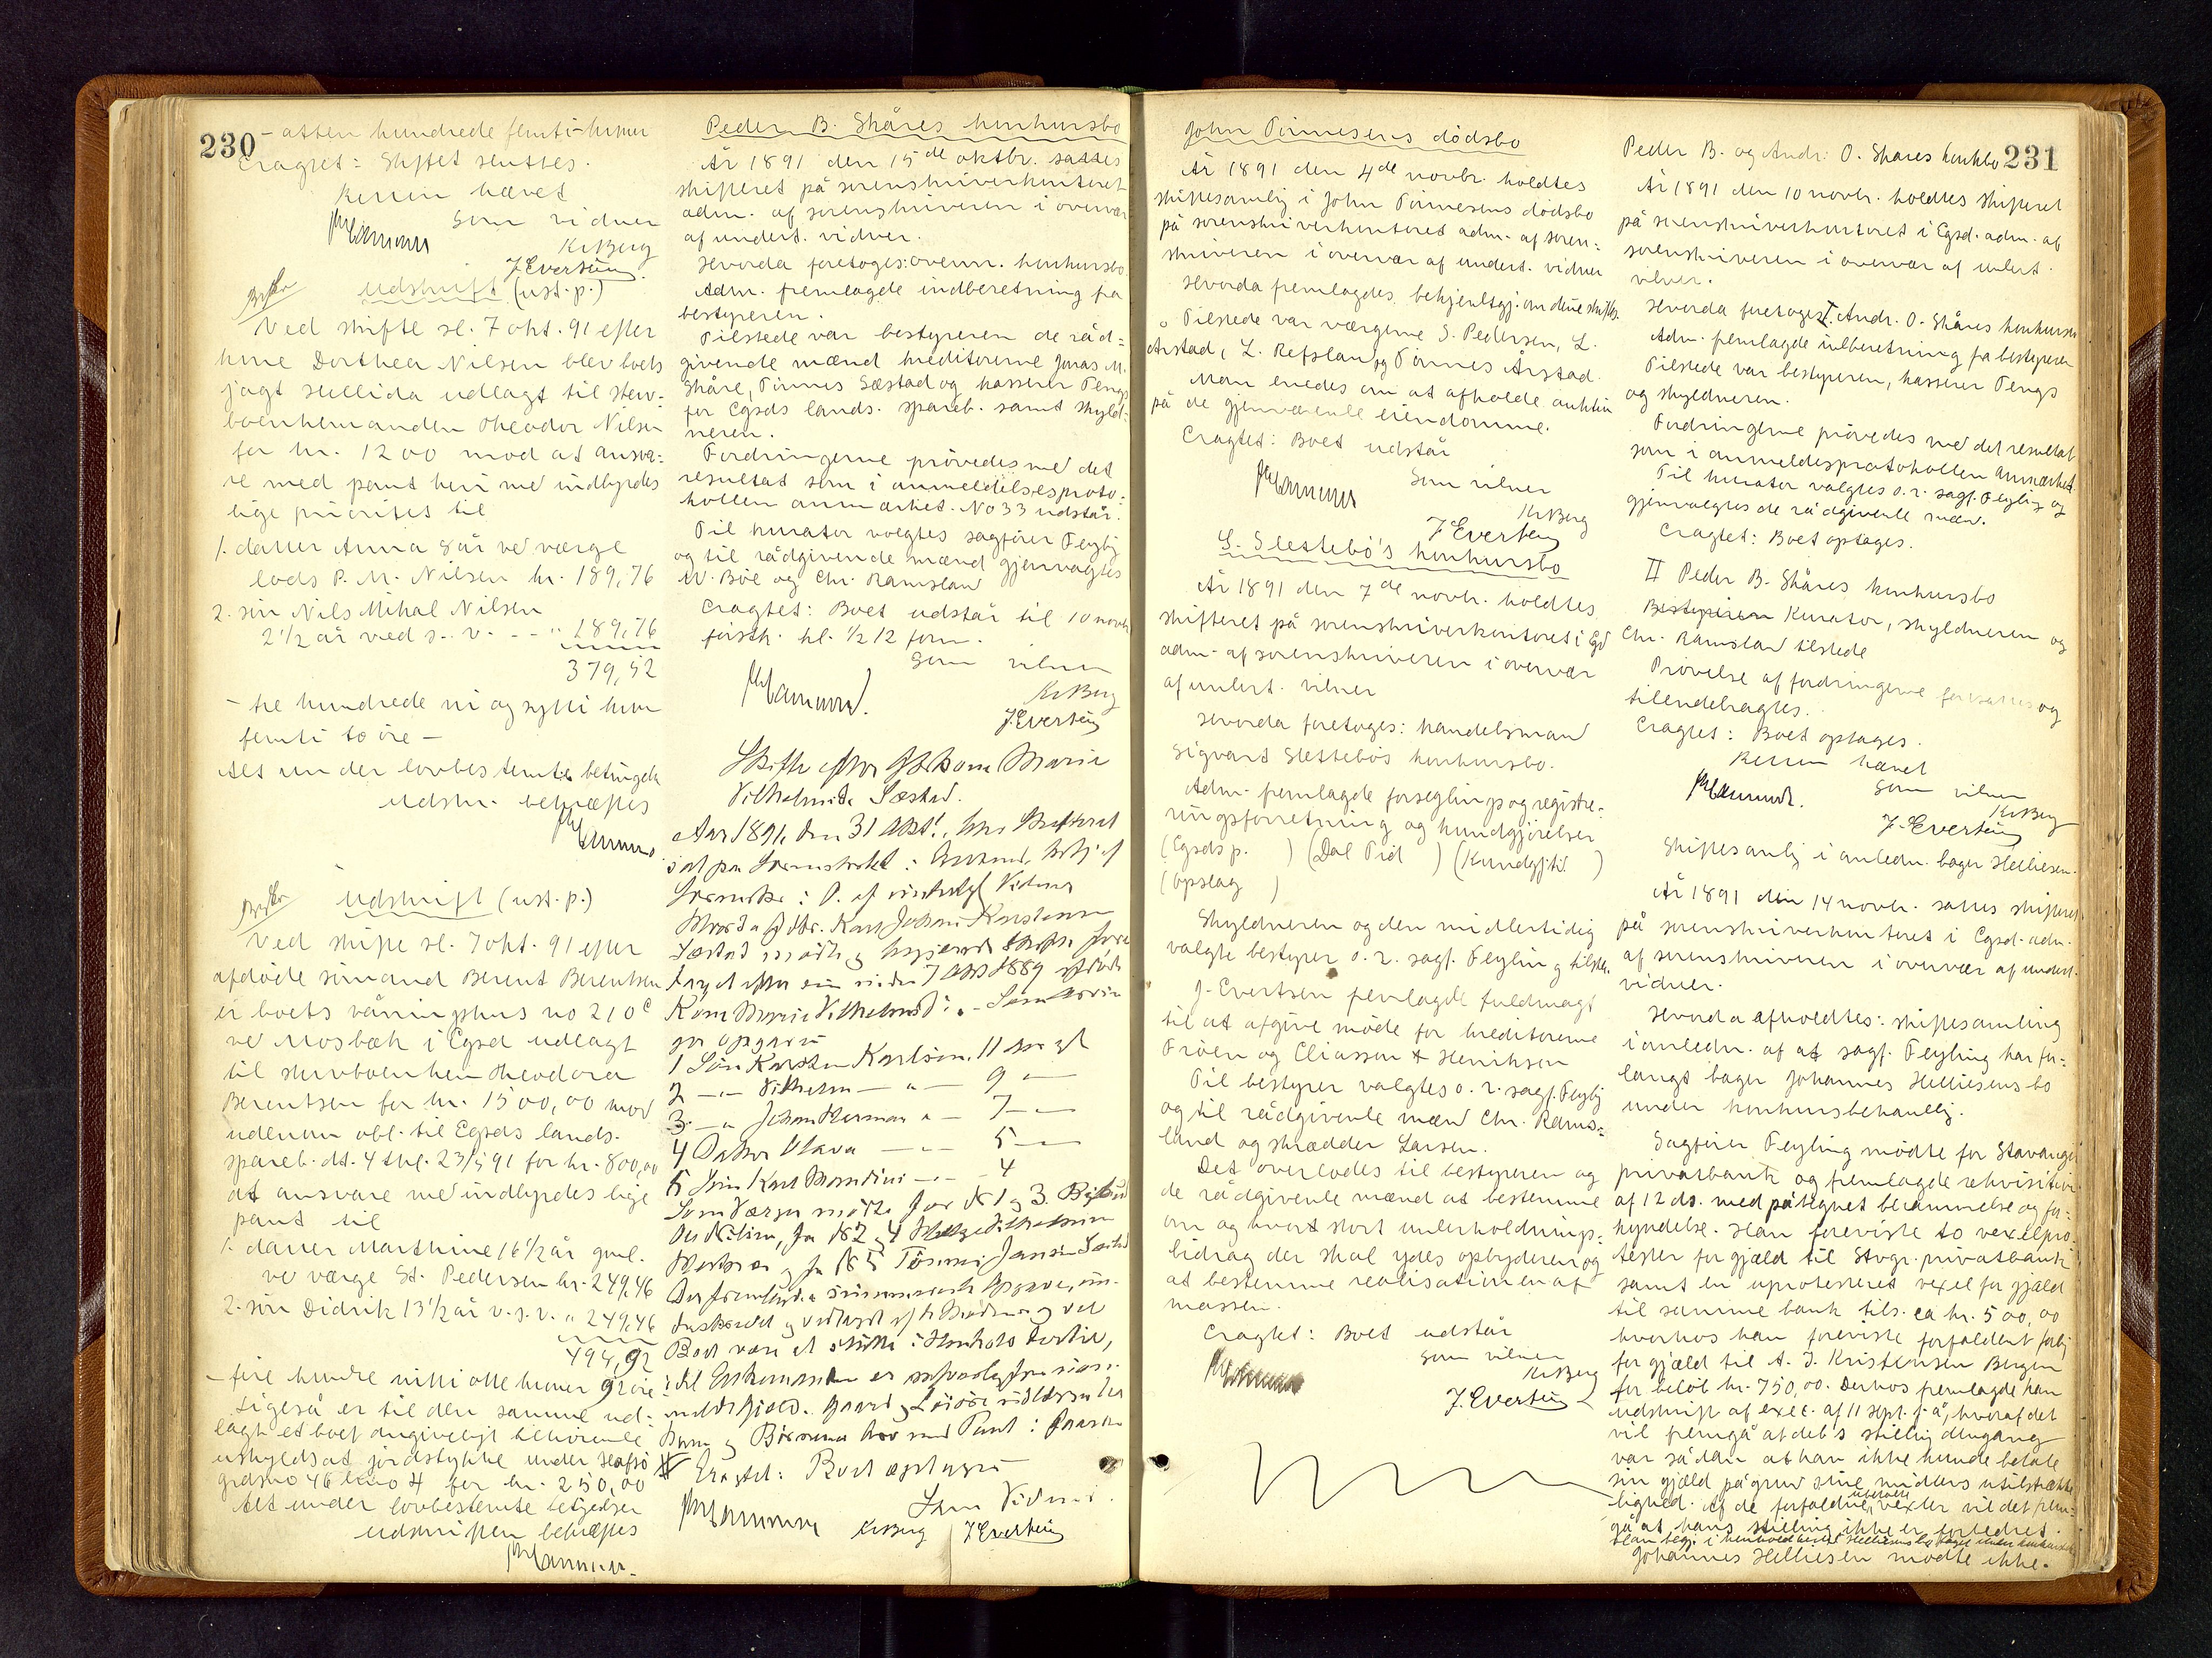 230
- atten hundrede femti kroner
Eragtet: Skiftet sluttes.
Retten hævet
Som vidner
KrBerg
J. Evertsen
Udskrift (ust. p.)
Ved skifte sl. 7 okt. 91 efter
kone Dorthea Nilsen blev boets
jagt Hellida udlagt til sterv-
boenkemanden Theodor Nilsen
for kr. 1200 mod at ansva-
re med pant heri med indbyrdes
lige prioritet til
1. datter Anna 8 år ved værge
lods P. M. Nilsen kr. 189,76
2. sön Nils Mihal Nilsen
2 1/2 år ved s. v. - - " 189,76
379,52
- tre hundrede ni og sytti kron
femti to öre -
Alt under lovbestemte betingelser
Udskr. bekræftes
Udskrift (ust. p.)
Ved skifte sl. 7 okt. 91 efter
afdöde sömand Berent Berentsen
er boets våningshus no 210 c
ved Mosbæk i Egsd udlagt
til stervboenken Theodora
Berentsen for kr. 1500,00 mod
udenom obl. til Egsds lands.
spareb. dt. 4 tgl. 23/5 91 for kr. 800,00
at ansvare med indbyrdes lige
pant til
1. datter Marthine 16 1/2 år gml.
ved værge St. Pedersen kr. 249,46
2. sön Didrik 13 1/2 år v. s. v. " 249,46
494,92
- fire hundre nitti otte kroner 92 öre
Ligeså er til den samme ud-
lagt et boet angiveligt tilhörende
uskyldsat jordstykke under
grdsno 46 bno 4 for kr. 250,00
Alt under lovbestemte betingelser
Udskriften bekræftes
Peder B. Skåres konkursbo
År 1891 den 15de oktbr. sattes
skifteret på sorenskriverkontoret
adm. af sorenskriveren i overvær
af undert. vidner.
Hvorda foretoges: ovenn. konkursbo
Adm. fremlagde indberetning fra
bestyreren.
Tilstede var bestyreren de råd-
givende mænd kreditorerne Jonas M.
Skåre, Tönnes Sæstad og kasserer Tengs
for Egsds lands. spareb. samt skyld-
neren.
Fordringerne prövedes med det
resultat som i anmeldelsesproto-
kollen anmærket. No 33 udstår.
Til kurator valgtes sagförer Feyling
og til rådgivende mænd gjenvalgtes
W. Böe og Chr. Ramsland
Eragtet: Boet udstår til 10 novb
förstk. kl. 1/2 12 form.
Som vidner
KrBerg
J. Evertsen
Skifte efter Kone Marie
Vilhelmide Sæstad.
Aar 1891 den 31 Okt. blev Skifteret
sat paa
af Vidner
Karl Johan Karstensen
Sæstad mödte
7 Okt 1889 afdöde
Kone Marie Vilhelmide
er opgivet
1 Sön Karsten Karlsen 11 Aar gl
2 - " Vilhelm - " - 9 -
3 - " Johan Herman " - 7 - "
4 Datter Olava - " - 5 -
5 Sön Karl Mandius - " - 4
Som Værger mödte for No 1 og 3.
for No 2 og 4
og for No 5 Tönnes Jansen Sæstad
Eragtet: Boet optages
Som Vidner.
KrBerg J. Evertsen
John Tönnesens dödsbo
År 1891 den 4de novbr. holdtes
skiftesamling i John Tönnesens dödsbo
på sorenskriverkontoret adm. af soren-
skriveren i overvær af undert. vidner
Hvorda fremlagdes bekjendtgj. om dine skifte.
Tilstede var værgerne S. Pedersen, L.
Årstad, L. Refsland og Tönnes Årstad.
Man enedes om at afholde auktion
på de gjenværende eiendomme.
Eragtet: Boet udstår
Som vidner
KrBerg
J. Evertsen
S. Slettebö's konkursbo
År 1891 den 7de novbr. holdtes
skifteret på sorenskriverkontoret i Egsd
adm. af sorenskriveren i overvær
af undert. vidner
Hvorda foretoges: handelsmand
Sigvart Slettebös konkursbo.
Adm. fremlagde forseglings og registre-
ringsforretning og kundgjörelser
(Egsds p. ) (Dal Tid ) (Kundgjtid. )
(Opslag )
Skyldneren og den midlertidig
valgte bestyrer o. r. sagf. Feyling tilstede.
J. Evertsen fremlagde fuldmagt
til at afgive möde for kreditorerne
Tröen og Eliassen & Henriksen
Til bestyrer valgtes o. r. sagf. Feyling
og til rådgivende mænd Chr. Rams-
land og skrædder Larsen.
Det overlodes til bestyreren og
de rådgivende mænd at bestemme
om og hvort stort underholdnings-
bidrag der skal ydes opbyderen og
at bestemme realisationen af
massen.
Eragtet: Boet udstår
Som vidner
KrBerg
J. Evertsen
Peder B. og Andr. O. Skåres konkbo 231
År 1891 den 10 novbr. holdtes skifteret
på sorenskriverkontoret i Egsd. adm. af
sorenskriveren i overvær af undert.
vidner.
Hvorda foretoges I. Andr. O. Skåres konkursbo
Adm. fremlagde indberetning fra bestyreren
Tilstede var bestyreren, kasserer Tengs
og skyldneren.
Fordringerne prövedes med det resultat
som i anmeldesprotokollen anmærket.
Til kurator valgtes o. r. sagf. Feyling og
gjenvalgtes de rådgivende mænd.
Eragtet: Boet optages.
II Peder B. Skåres konkursbo
Bestyreren Kurator, skyldneren og
Chr. Ramsland tilstede
Prövelse af fordringerne fortsattes og
tilendebragtes.
Eragtet: Boet optages.
Retten hævet
Som vidner
KrBerg
J. Evertsen
Skiftesamling i anledn. bager Helliesen.
År 1891 den 14 novbr. sattes skifteret
på sorenskriverkontoret i Egsd. adm.
af sorenskriveren i overvær af undert.
vidner.
Hvorda afholdtes: skiftesamling
i anledn. af at sagf. Feyling har for-
langt bager Johannes Helliesens bo
under konkursbehandling.
Sagförer Feyling mödte for Stavanger
privatbank og fremlagde rekvisition
af 12 ds. med påtegnet berammelse og for-
kyndelse. Han foreviste to vexelpro-
tester for gjæld til Stvgr. privatbank
samt en uprotesteret vexel for gjæld
til samme bank tils. ca kr. 500,00
hvorhos han foreviste forfaldent forlig
for gjæld til A. J. Kristensen Bergen
for belöb kr. 750,00. Derhos fremlagde han
udskrift af exec. af 11 sept. f. å, hvoraf det
vil fremgå at deb's stilling dengang
var sådan at han ikke kunde betale
sin gjæld på grund sine midlers utilstrække-
lighed. Af de forfaldne vexler vil det frem-
gå at hans stilling ikke er forbedret.
Johannes Helliesen mödte ikke.